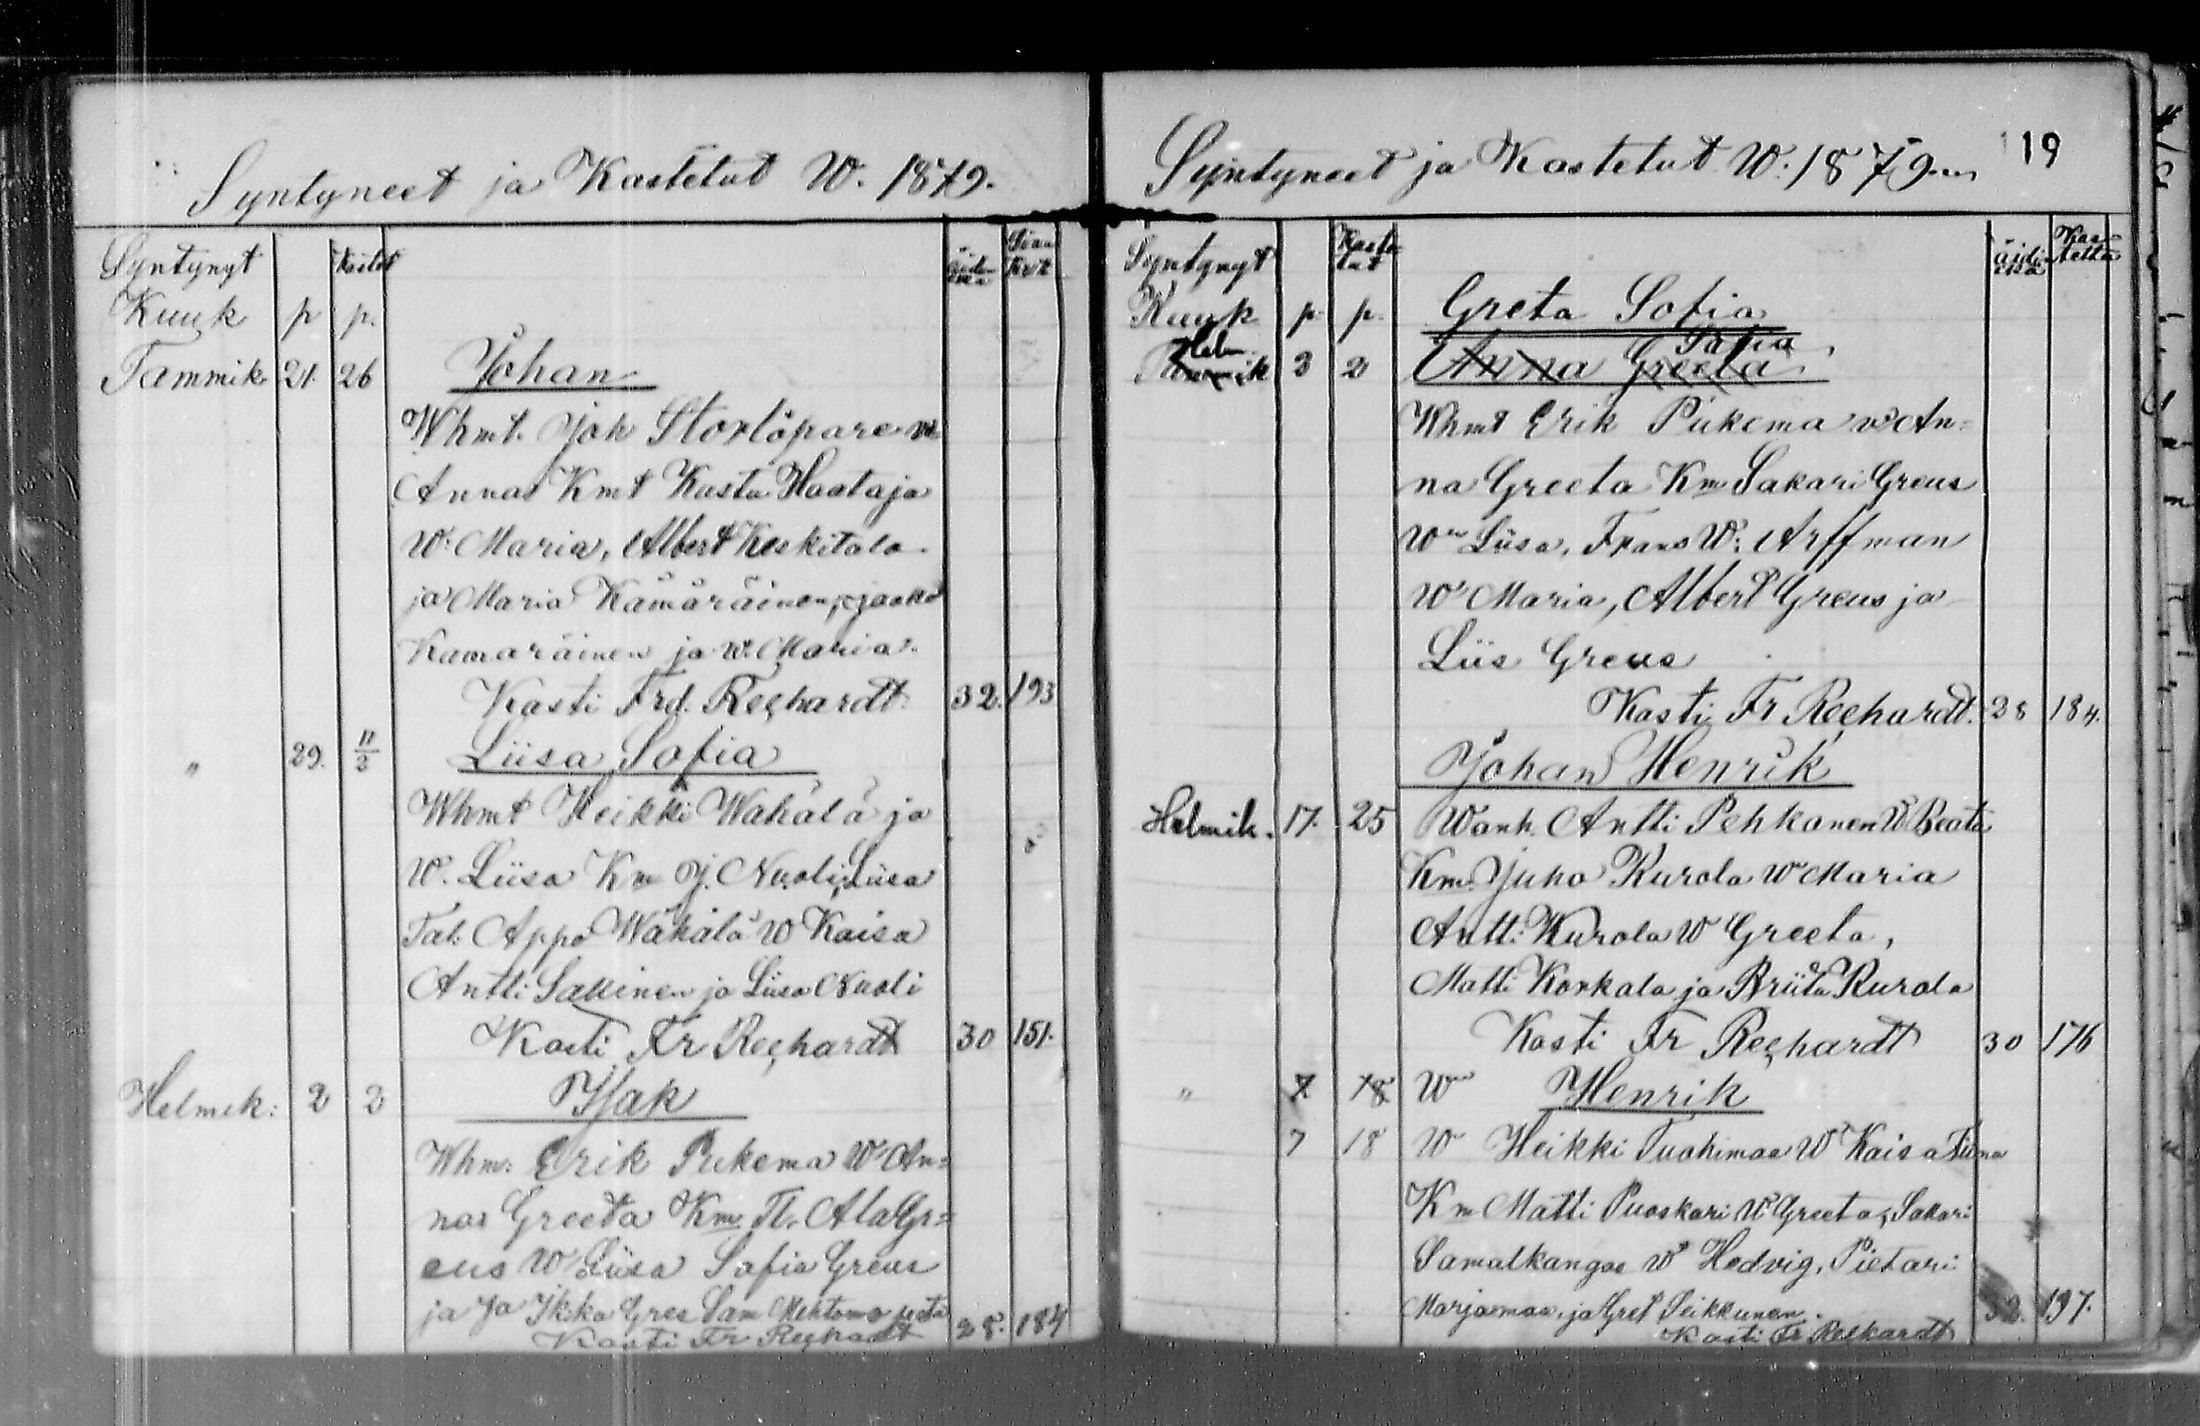 Syntyneet ja Kastetut W. 1879.
Syntynyt Kastet äidin ikä Sivu
Kuuk p p.
Tammik. 21. 26 Johan
Whmt. Joh Storlöpare w
Anna Kmt Kusta Haataja
W: Maria, Albert Keskitalo
ja Maria Kämäräinen, Jaako
Kamaräinen ja W. Maria.
Kasti Frd. Rechardt. 32. 193
" 29. 11/2 Liisa Sofia
Whmt Heikki Wähälä ja
W. Liisa Km J. Nuoli, Liisa
Tal. Appo Wähälä W Kaisa
Antti Sakkinen ja Liisa Nuoli
Kasti Fr Rechardt 30 151.
Helmik: 2 2 Isak
Whm: Erik Pukema W An=
na Greeta Km Tl. Ala Gr=
eus W Liisa Sofia Greus
ja Jo Ikko Gres Sam
Kasti Fr Rechardt 28. 184
Syntyneet ja Kastetut W: 1879. 19
Syntynyt Kastetut äidin ikä
Kuuk p. p. Greta Sofia
Helmik 3 2 Anna Greeta Sofia
Whmt Erik Pukema W An=
na Greeta Km Sakari Greus
W Liisa, Frans W: Arffman
W Maria, Albert Greus ja
Liis Greus
Kasti Fr Rechardt. 28 184.
Johan Henrik
Helmik. 17. 25 Wanh. Antti Pehkonen W Beata
Km. Juho Kurola W Maria
Antti Kurola W Greeta,
Matti Korkala ja Briita Kurola
Kasti Fr Rechardt 30 176
" 7 18 W Henrik
7 18 W Heikki Tuohimaa W Kaisa Tiina
Km Matti Puoskari W Greeta, Sakari
Samalkangas W Hedvig, Pietari
Marjamaa, ja Gret Seikkunen.
Kasti Fr Rechardt 32. 197.